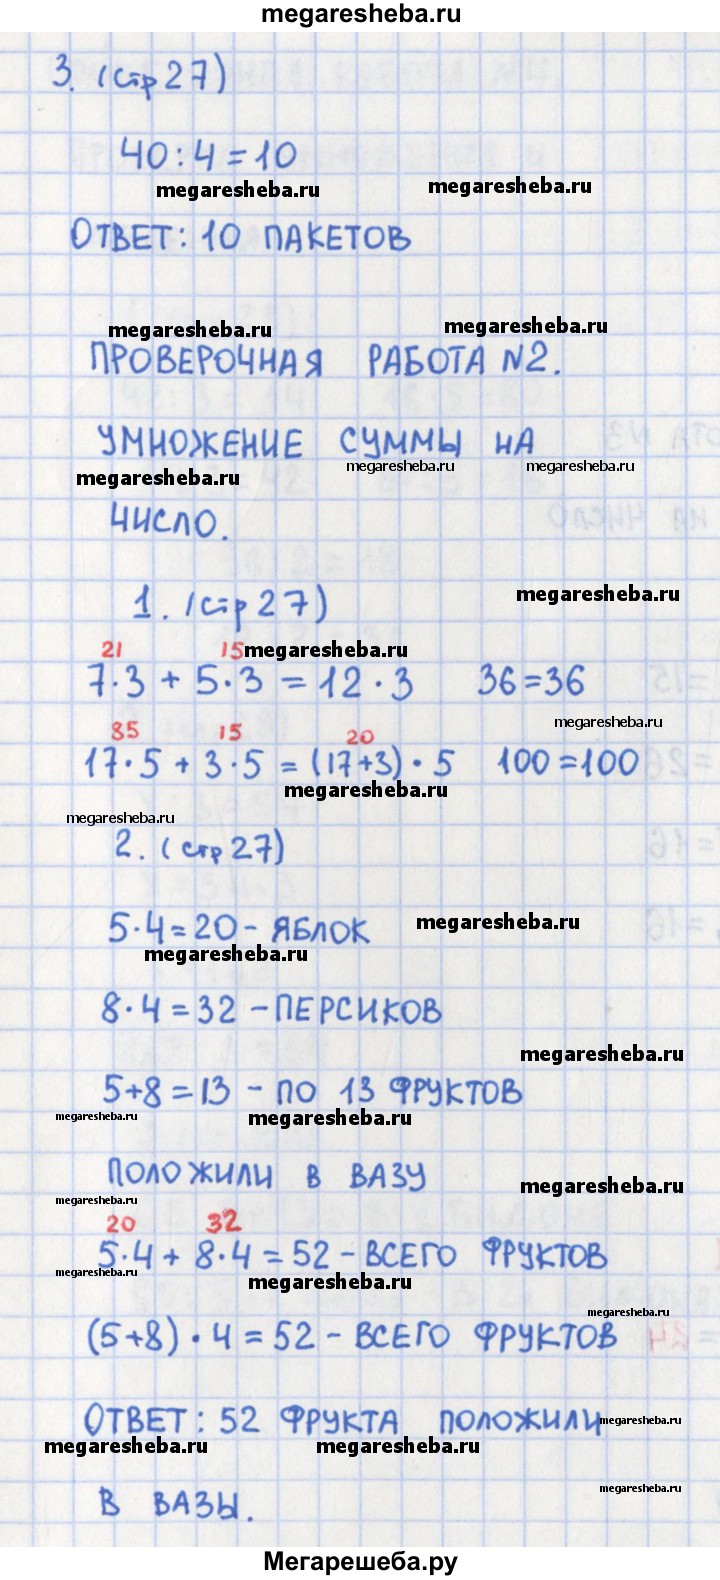 megaresheba.ru
3. (стр 27)
40 : 4 = 10
megaresheba.ru megaresheba.ru
ОТВЕТ: 10 ПАКЕТОВ
megaresheba.ru megaresheba.ru
ПРОВЕРОЧНАЯ РАБОТА №2.
УМНОЖЕНИЕ СУММЫ НА
megaresheba.ru megaresheba.ru megaresheba.ru
ЧИСЛО.
1. (стр 27) megaresheba.ru
21 15 megaresheba.ru
7·3 + 5·3 = 12·3 36=36
megaresheba.ru
85 15 20
17·5 + 3·5 = (17+3)·5 100=100
megaresheba.ru
megaresheba.ru
2. (стр 27)
5·4=20 - ЯБЛОК megaresheba.ru
megaresheba.ru
8·4=32 - ПЕРСИКОВ
megaresheba.ru
5+8=13 - ПО 13 ФРУКТОВ
megaresheba.ru megaresheba.ru
ПОЛОЖИЛИ В ВАЗУ megaresheba.ru
megaresheba.ru
20 32
5·4 + 8·4 = 52 - ВСЕГО ФРУКТОВ
megaresheba.ru megaresheba.ru
megaresheba.ru
(5+8)·4=52 - ВСЕГО ФРУКТОВ
ОТВЕТ: 52 ФРУКТА ПОЛОЖИЛИ megaresheba.ru
megaresheba.ru megaresheba.ru
В ВАЗЫ. megaresheba.ru
Мегарешеба.ру